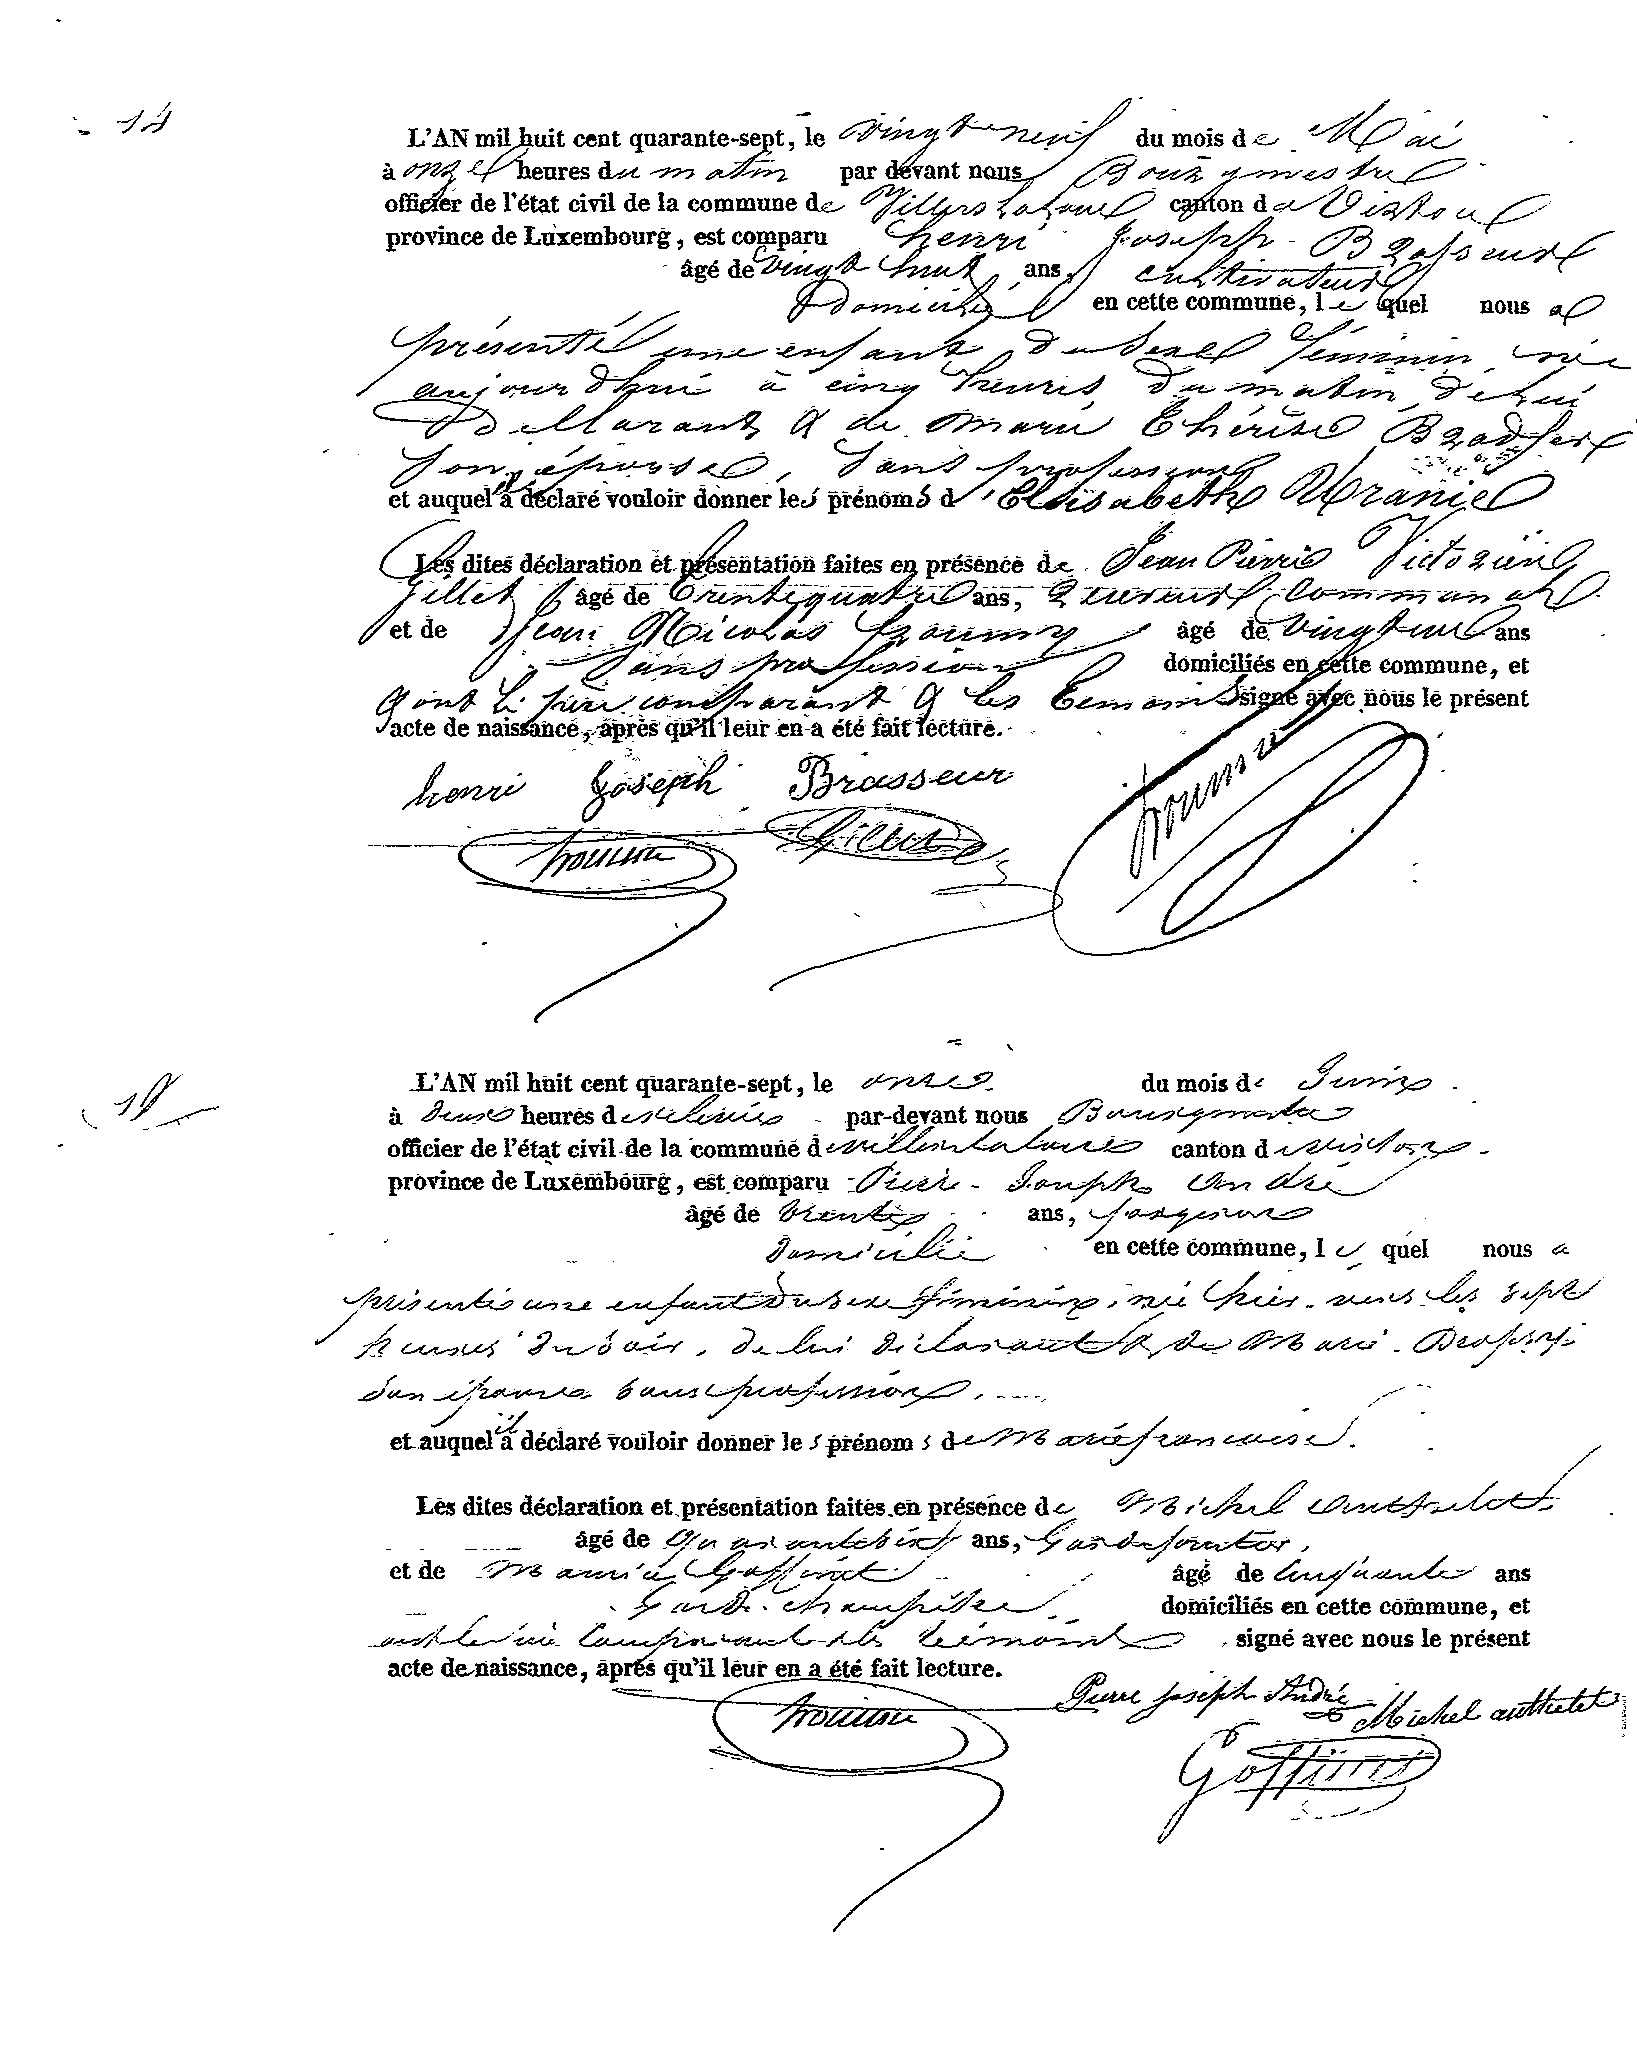 14
L'AN mil huit cent quarante-sept, le vingt neuf du mois de Mai
à onze heures du matin par devant nous Bourgmestre
officier de l'état civil de la commune de Villers la loue canton de Virton
province de Luxembourg, est comparu henri Joseph Brasseur
âgé de vingt huit ans, cultivateur
domicilié en cette commune, lequel nous a
présenté une enfant du sexe féminin née
aujourdhui à cinq heures du matin, de lui
déclarant & de marie Thérèse
son épouse, sans profession
et auquel il a déclaré vouloir donner les prénoms d'Elisabeth Uranie
Les dites déclaration et présentation faites en présence de Jean Pierre Victorien
Gillet âgé de trente quatre ans, receveur communal
et de Jean Nicolas âgé de vingt un ans
sans profession domiciliés en cette commune, et
ont le père comparant & les témoins signé avec nous le présent
acte de naissance, après qu'il leur en a été fait lecture.
henri Joseph Brasseur
Gillet
L'AN mil huit cent quarante-sept, le onze du mois de Juin
à deux heures de relevée par-devant nous Bourgmestre
officier de l'état civil de la commune de villers la loue canton de virton
province de Luxembourg, est comparu Pierre Joseph André
âgé de trente ans, forgeron
domicilié en cette commune, lequel nous a
présenté une enfant du sexe féminin, née hier vers les sept
heures du soir, de lui déclarant & de Marie
son épouse sans profession.
et auquel il a déclaré vouloir donner les prénoms de Marie francoise.
Les dites déclaration et présentation faites en présence de Michel authelet
âgé de quarante six ans, Garde forestier,
et de Goffinet âgé de cinquante ans
Garde champêtre domiciliés en cette commune, et
ont le père comparant & les témoins signé avec nous le présent
acte de naissance, après qu'il leur en a été fait lecture.
Pierre joseph André
Michel authelet
Goffinet